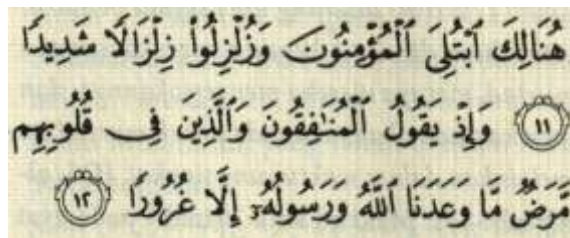 هُنَالِكَ ٱبْتُلِىَ ٱلْمُؤْمِنُونَ وَزُلْزِلُوا۟ زِلْزَالًا شَدِيدًا
١١ وَإِذْ يَقُولُ ٱلْمُنَـٰفِقُونَ وَٱلَّذِينَ فِى قُلُوبِهِم
مَّرَضٌ مَّا وَعَدَنَا ٱللَّهُ وَرَسُولُهُۥٓ إِلَّا غُرُورًا ١٢